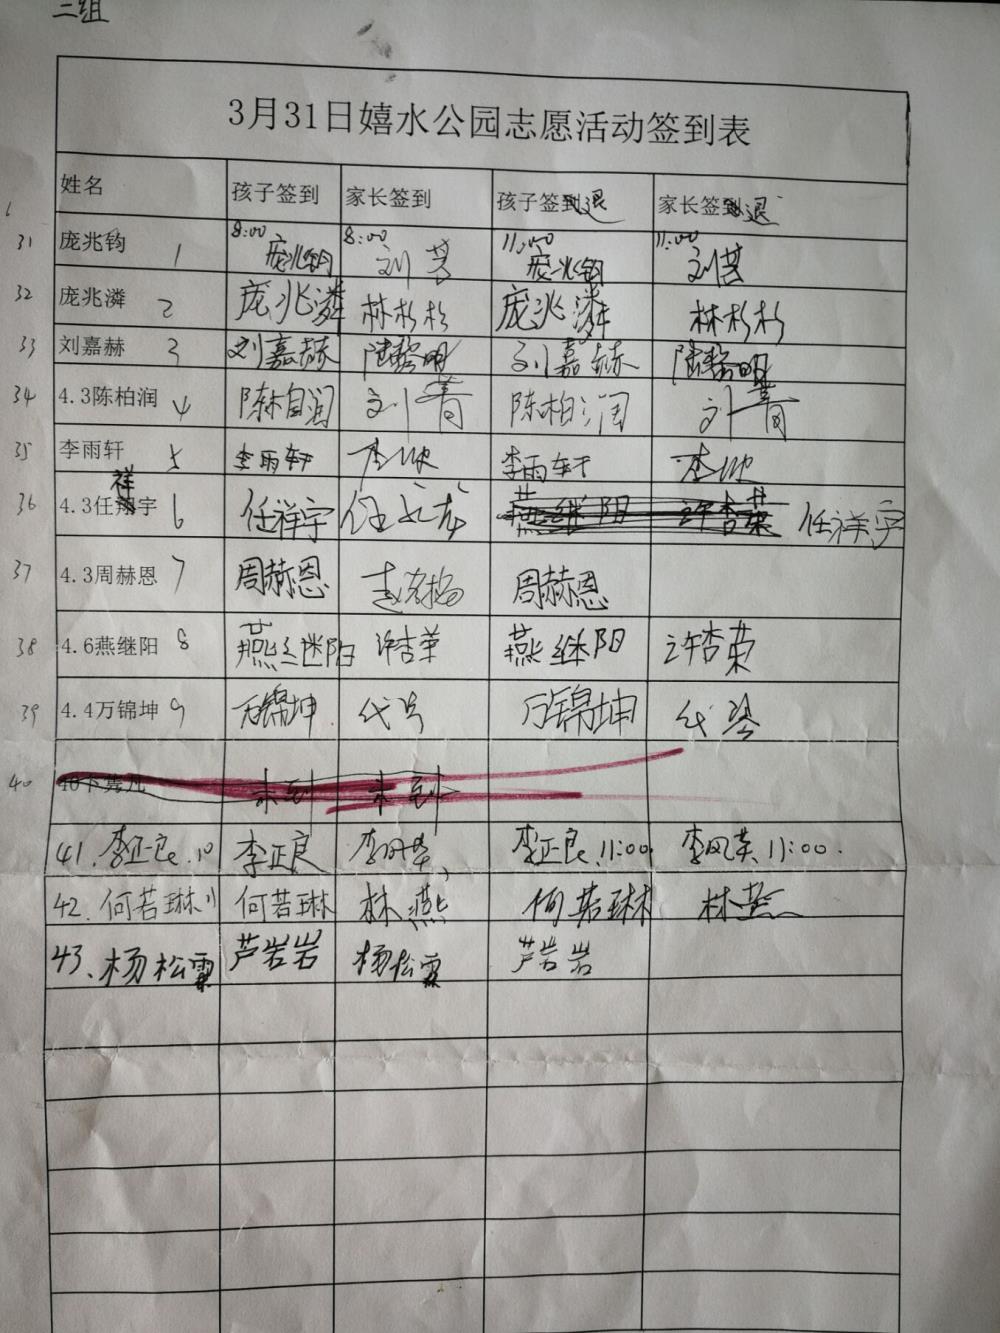 三组
3月31日嬉水公园志愿活动签到表
姓名 孩子签到 家长签到 孩子签到退 家长签到退
31 庞兆钧 1 8:00 庞兆钧 8:00 刘芸 11:00 庞兆钧 11:00 刘芸
32 庞兆潾 2 庞兆潾 林杉杉 庞兆潾 林杉杉
33 刘嘉赫 3 刘嘉赫 刘嘉赫
34 4.3陈柏润 4 陈柏润 刘菁 陈柏润 刘菁
35 李雨轩 5 李雨轩 李雨轩
36 4.3任祥宇 6 任祥宇 燕继阳 许杏荣 任祥宇
37 4.3周赫恩 7 周赫恩 周赫恩
38 4.6燕继阳 8 燕继阳 许杏荣 燕继阳 许杏荣
39 4.4万锦坤 9 万锦坤 万锦坤
40 未到 未到
41、李正良 10 李正良 李正良、11:00 李凤英、11:00.
42、何若琳 11 何若琳 林燕 何若琳 林燕
43、杨松霖 芦岩岩 杨松霖 芦岩岩